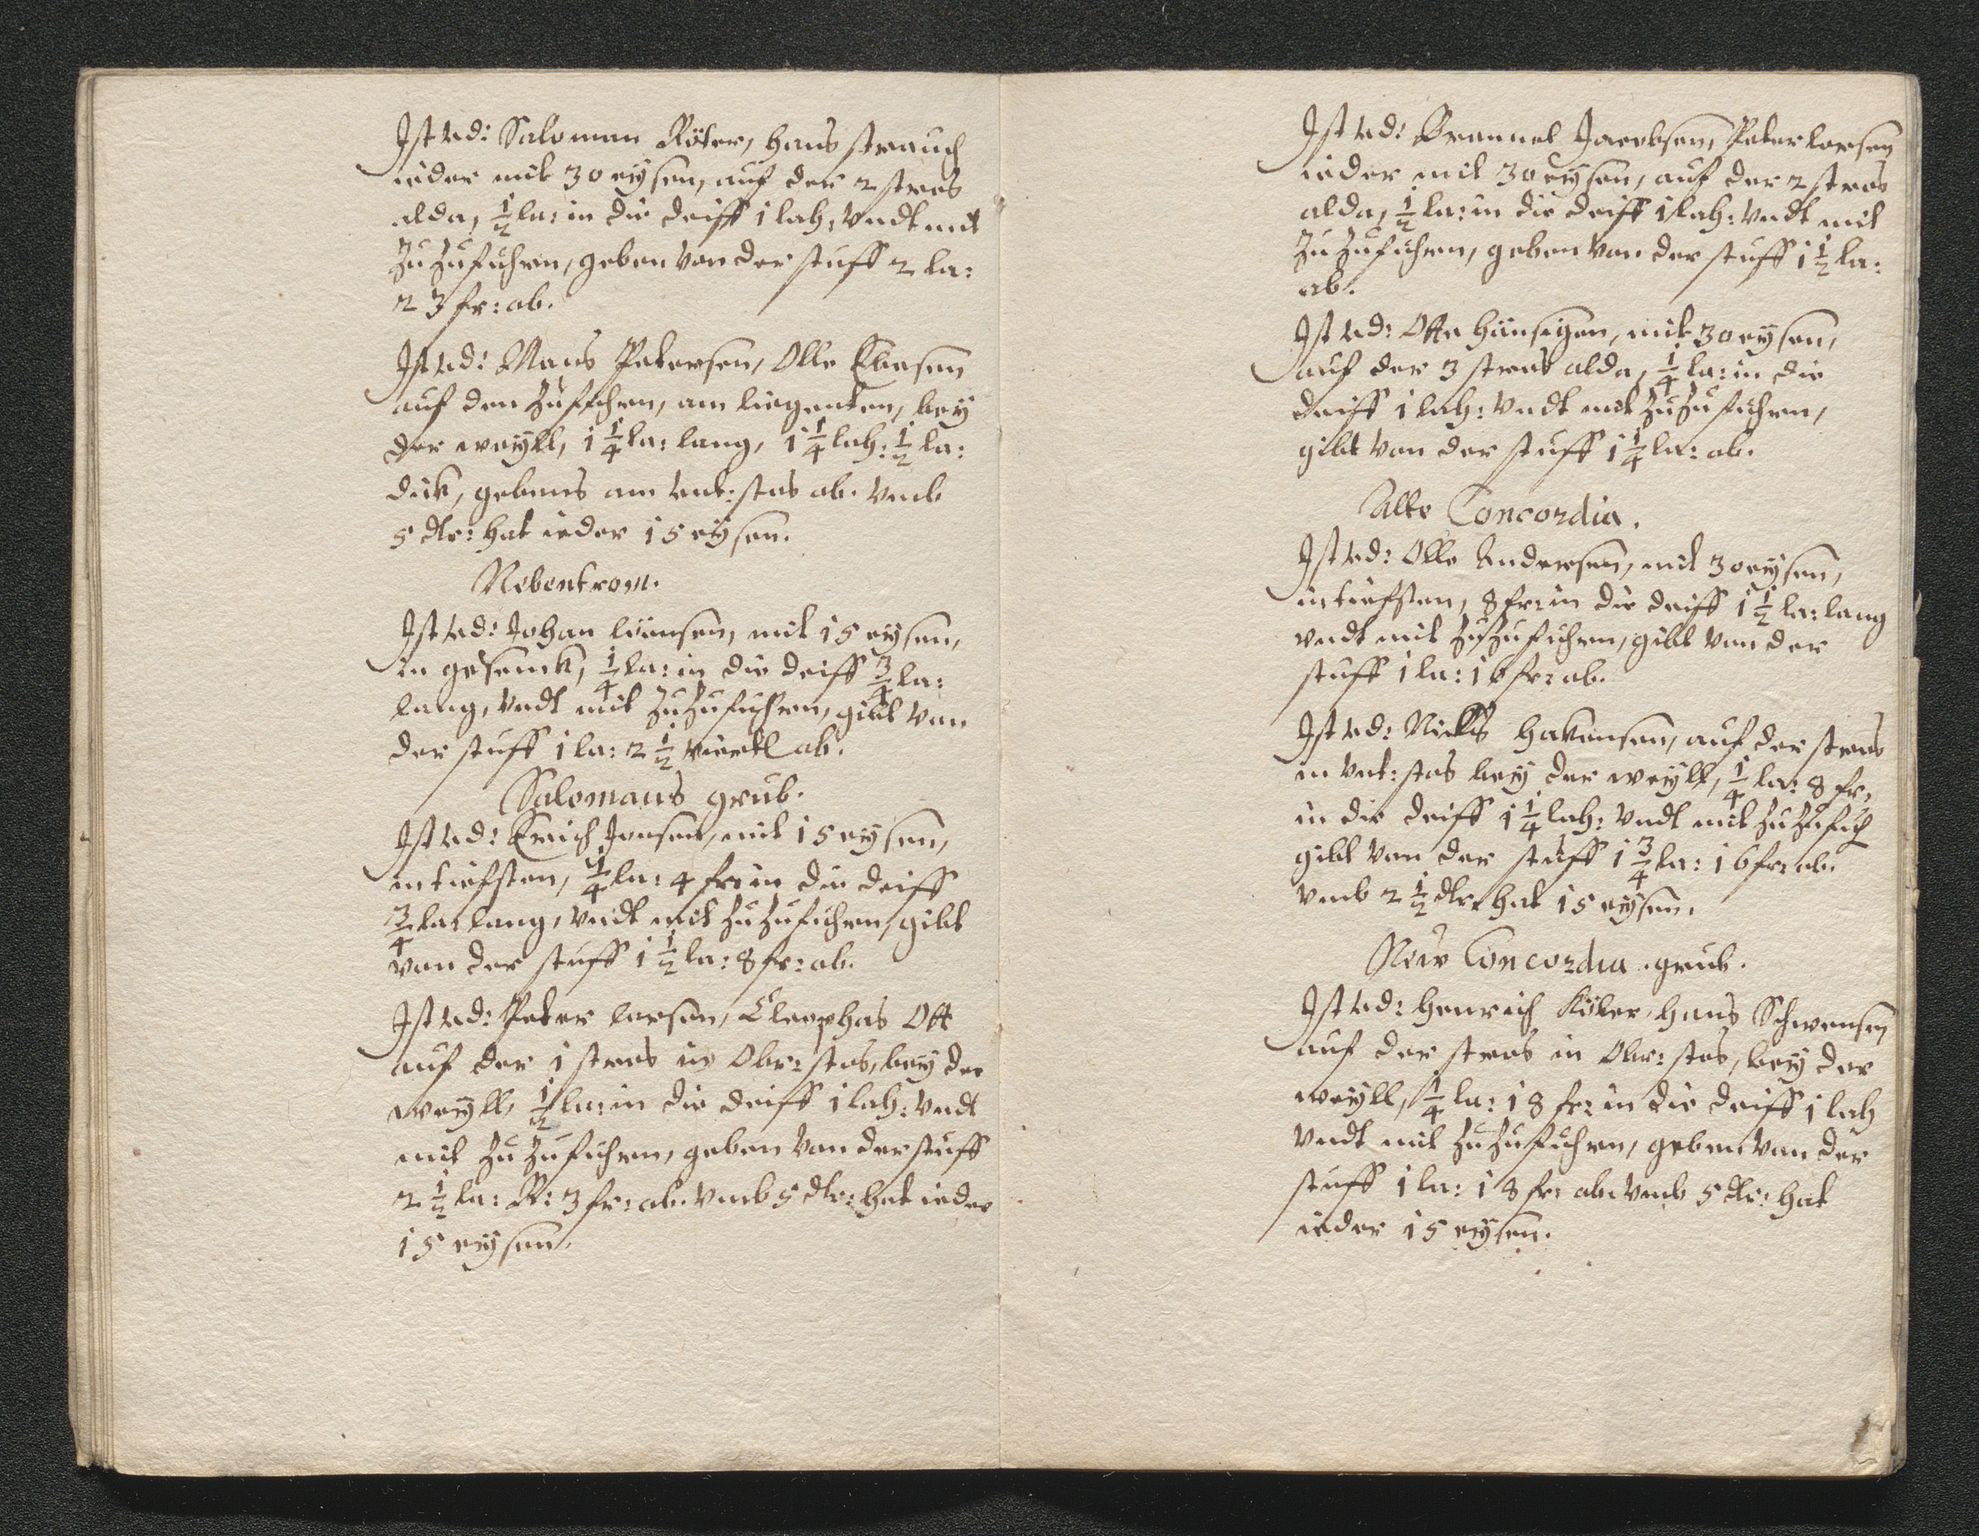 Ist ud: Saloman Röter, hans strauch
ieder mit 30 eysen, auf der 2 stros
alda, ½ la: in die deiff 1 lah: undt mit
zu zufuhren, geben von der stuff 2 la:
23 fr: ab.
Ist ud: Mans Petersen, Olle
auf den zufuhren, am liegenten, bey
der weyll, 1¼ la: lang, 1¼ lah: ½ la:
dick, gebens am unt: stos ab. umb
5 dlr: hat ieder 15 eysen.
Nebentrom.
Ist ud: Johan lönsen, mit 15 eysen,
in gesenck, ¼ la: in die deiff ¾ la:
lang, undt mit zu zufuhren, gibt von
der stuff 1 la: 2½ viertl ab.
Salomans grub.
Ist ud: Erich Jonsen, mit 15 eysen,
in tiefsten, ¼ la: 4 fr: in die deiff
¾ la: lang, undt mit zu zufuhren, gibt
von der stuff 1½ la: 8 fr: ab.
Ist ud: Peter larsen, Cleophas Ott
auf der 1 stros in Obr: stos, bey der
weyll, ½ la: in die deiff 1 lah: undt
mit zu zufuhren, geben von der stuff
2½ la: R: 3 fr: ab. umb 5 dlr: hat ieder
15 eysen.
Ist ud: Jacobsen, Peter larsen
ieder mit 30 eysen, auf der 2 stros
alda, ½ la: in die deiff 1 lah: undt mit
zu zufuhren, geben von der stuff 1½ la:
ab.
Ist ud: Otte hünsigen, mit 30 eysen,
auf der 3 stros alda, ¼ la: in die
deiff 1 lah: undt mit zu zufuhren,
gibt von der stuff 1¼ la: ab.
Alte Concordia.
Ist ud: Olle Andersen, mit 30 eysen,
in tiefsten, 8 fr: in die deiff 1½ la: lang
undt mit zu zufuhren, gibt von der
stuff 1 la: 16 fr: ab.
Ist ud: Niells hakensen, auf der stros
in unt: stos bey der weyll, ¼ la: 8 fr:
in die deiff 1¼ lah: undt mit zu zufuh
gibt von der stuff 1¾ la: 16 fr: ab.
umb 2½ dlr: hat 15 eysen.
New Concordia grub.
Ist ud: henrich Köler, hans Schwensen
auf der stros in Obr: stos, bey der
weyll, ¼ la: 18 fr: in die deiff 1 lah
undt mit zu zufuhren, geben von der
stuff 1 la: 18 fr: ab. umb 5 dlr: hat
ieder 15 eysen.